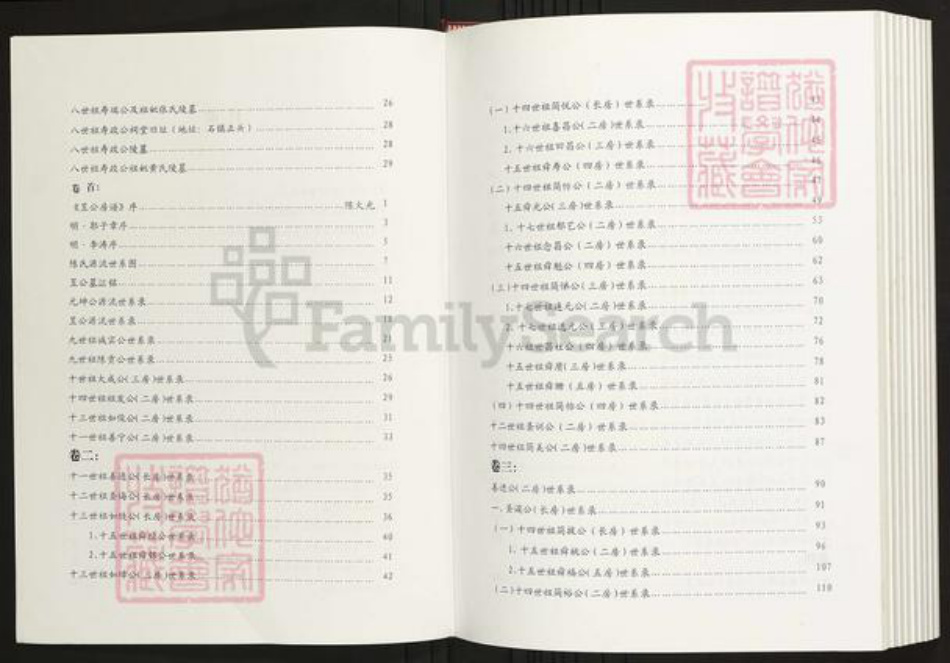 八世祖寿瑞公及祖妣张氏陵墓 26
八世祖寿政公祠堂旧址（地址：石镇正头） 28
八世祖寿政公陵墓 28
八世祖寿政公祖妣黄氏陵墓 29
卷首：
《昱公房谱》序 陈火光 1
明·郭子章序 3
明·李涛序 5
陈氏源流世系图 7
昱公墓证铭 11
元坤公源流世系录 12
昱公源流世系录
九世祖诚宾公世系录 21
九世祖陈贵公世系录 25
十世祖大成公(三房)世系录 26
十四世祖祖发公(二房)世系录 29
十三世祖如俊公(二房)世系录 31
十一世祖善宁公(二房)世系录 33
卷二：
十一世祖善进公(长房)世系录 35
十二世祖圣海公(长房)世系录 35
十三世祖如 公(长房)世系录 36
1.十五世祖舜 公世系录 40
2.十五世祖舜 公世系录 41
十三世祖如 公(二房)世系录 42
(一)十四世祖简悦公（长房）世系录 43
1.十六世祖喜昌公（二房)世系录 44
2.十六世祖曰昌公（三房）世系录 45
十五世祖舜寿公（四房）世系录 46
(二)十四世祖简 公（二房）世系录 47
十五舜光公(三房)世系录 49
1.十七世祖邦艺公（二房）世系录 55
十六世祖念昌公（二房）世系录 60
十五世祖舜魁公（四房）世系录 62
(三)十四世祖简 公（三房）世系录 63
1.十七世祖连元公(二房）世系录 70
2.十七世祖选元公（三房）世系录 72
十六祖世昌社公（四房）世系录 76
十五世祖舜 (三房)世系录 78
十五世祖舜 （五房）世系录 81
(四)十四世祖简怡公（四房）世系录 82
十二世祖圣训公（二房）世系录 83
十四世祖简美公(二房)世系录 87
卷三：
善进公(二房)世系录 90
一.圣谟公(长房)世系录 91
(一)十四世祖简 公（长房）世系录 93
1.十五世祖舜 公（二房）世系录 96
2.十五世祖舜 公（五房）世系录 107
(二)十四世祖简裕公(二房)世系录 110
FamilySearch